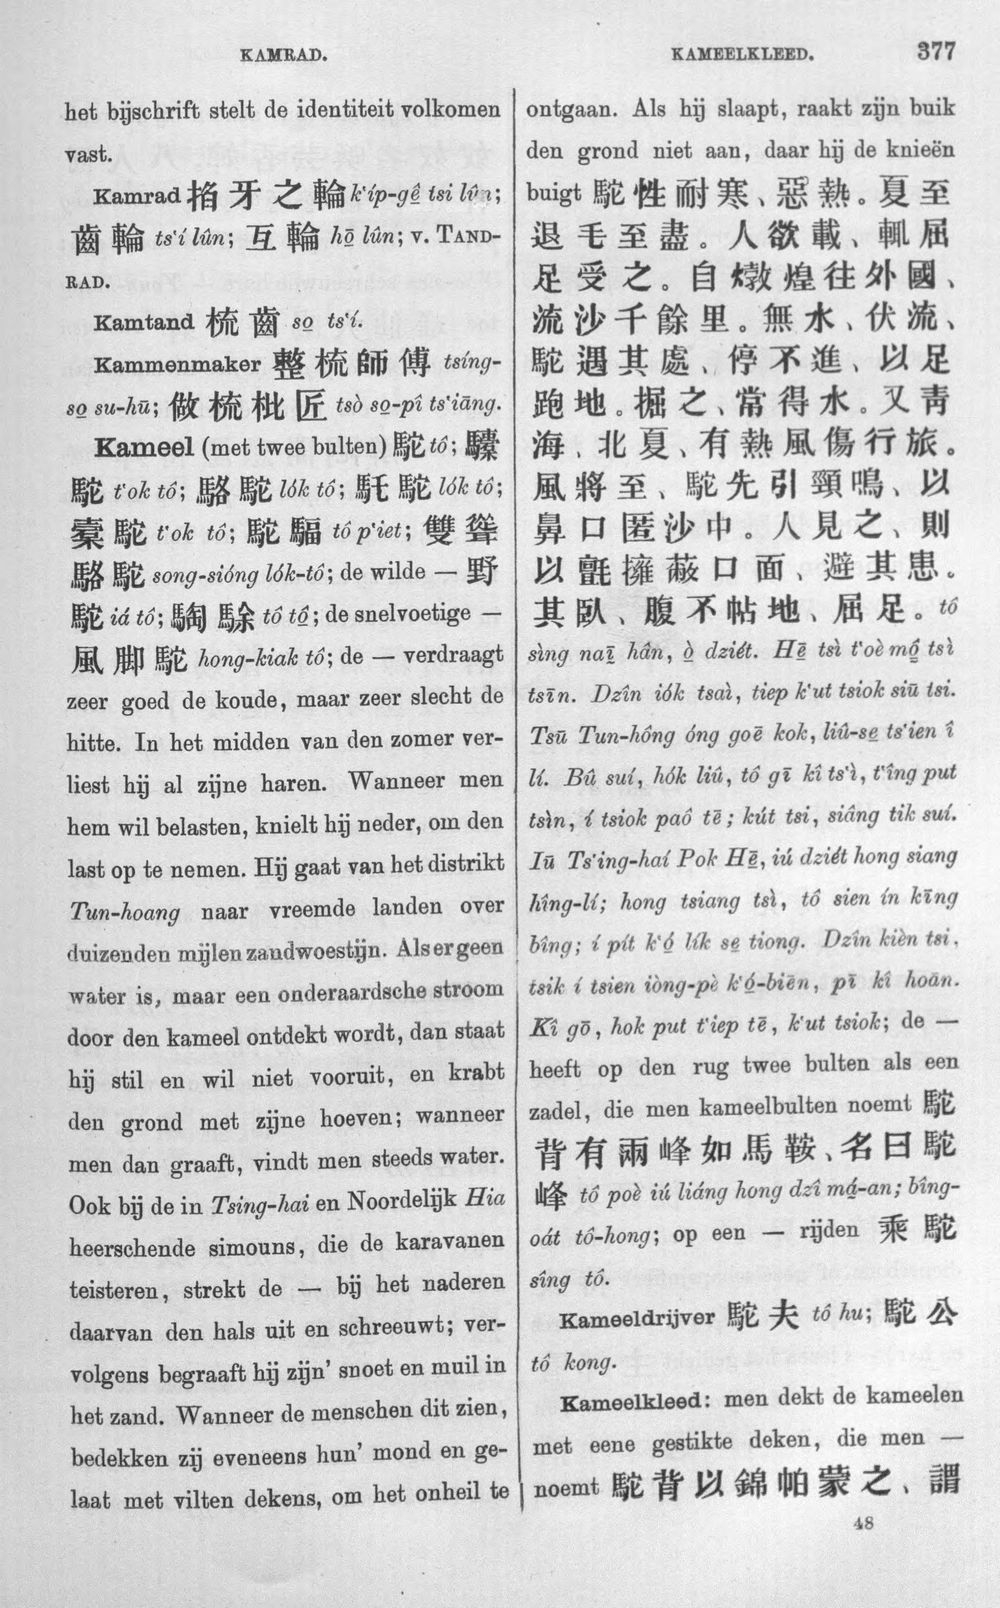 KAMRAD.
KAMEELKLEED.
377
het bijschrift stelt de identiteit volkomen
vast.
Kamrad 掐牙之輪 k'ip-gê tsi lûn;
齒輪 ts'í lûn; 互輪 hō lûn; v. TAND-
RAD.
Kamtand 梳齒 so̱ ts'í.
Kammenmaker 整梳師傅 tsíng-
so̱ su-hū; 做梳枇匠 tsò so̱-pî ts'iāng.
Kameel (met twee bulten) 駝 tô; 驝
駝 t'ok tô; 駱駝 lók tô; 馲駝 lók tô;
橐駝 t'ok tô; 駝騙 tô p'iet; 雙聳
駱駝 song-sióng lók-tô; de wilde — 野
駝 iá tô; 騊駼 tô tô̱; de snelvoetige —
風脚駝 hong-kiak tô; de — verdraagt
zeer goed de koude, maar zeer slecht de
hitte. In het midden van den zomer ver-
liest hij al zijne haren. Wanneer men
hem wil belasten, knielt hij neder, om den
last op te nemen. Hij gaat van het distrikt
Tun-hoang naar vreemde landen over
duizenden mijlen zandwoestijn. Als er geen
water is, maar een onderaardsche stroom
door den kameel ontdekt wordt, dan staat
hij stil en wil niet vooruit, en krabt
den grond met zijne hoeven; wanneer
men dan graaft, vindt men steeds water.
Ook bij de in Tsing-hai en Noordelijk Hia
heerschende simouns, die de karavanen
teisteren, strekt de — bij het naderen
daarvan den hals uit en schreeuwt; ver-
volgens begraaft hij zijn' snoet en muil in
het zand. Wanneer de menschen dit zien,
bedekken zij eveneens hun' mond en ge-
laat met vilten dekens, om het onheil te
ontgaan. Als hij slaapt, raakt zijn buik
den grond niet aan, daar hij de knieën
buigt 駝性耐寒、惡熱。夏至
退毛至盡。人欲載、輒屈
足受之。自燉煌往外國、
流沙千餘里。無水、伏流、
駝遇其處、停不進、以足
跑地。掘之、常得水。又靑
海、北夏、有熱風傷行旅。
風將至、駝先引頸鳴、以
鼻口匿沙中。人見之、則
以氈擁蔽口面、避其患。
其臥、腹不帖地、屈足。tô
sìng naī hân, ò̱ dziét. Hē̱ tsì t'oè mô̱ tsì
tsīn. Dzîn iók tsaì, tiep k'ut tsiok siū tsi.
Tsū Tun-hông óng goē kok, liû-se̱ ts'ien î
lí. Bû suí, hók liû, tô gī kî ts'ì, t'îng put
tsìn, í tsiok paô tē; kút tsi, siâng tik suí.
Iū Ts'ing-haí Pok Hē̱, iú dziét hong siang
hîng-lí; hong tsiang tsì, tô sien ín kīng
bîng; í pít k'ó̱ lík se̱ tiong. Dzîn kièn tsi,
tsik í tsien iòng-pè k'ó̱-biēn, pī kî hoān.
Kî gō, hok put t'iep tē, k'ut tsiok; de —
heeft op den rug twee bulten als een
zadel, die men kameelbulten noemt 駝
背有兩峰如馬鞍、名曰駝
峰 tô poè iú liáng hong dzî má̱-an; bîng-
oát tô-hong; op een — rijden 乘駝
sîng tô.
Kameeldrijver 駝夫 tô hu; 駝公
tô kong.
Kameelkleed: men dekt de kameelen
met eene gestikte deken, die men —
noemt 駝背以錦帕蒙之、謂
48